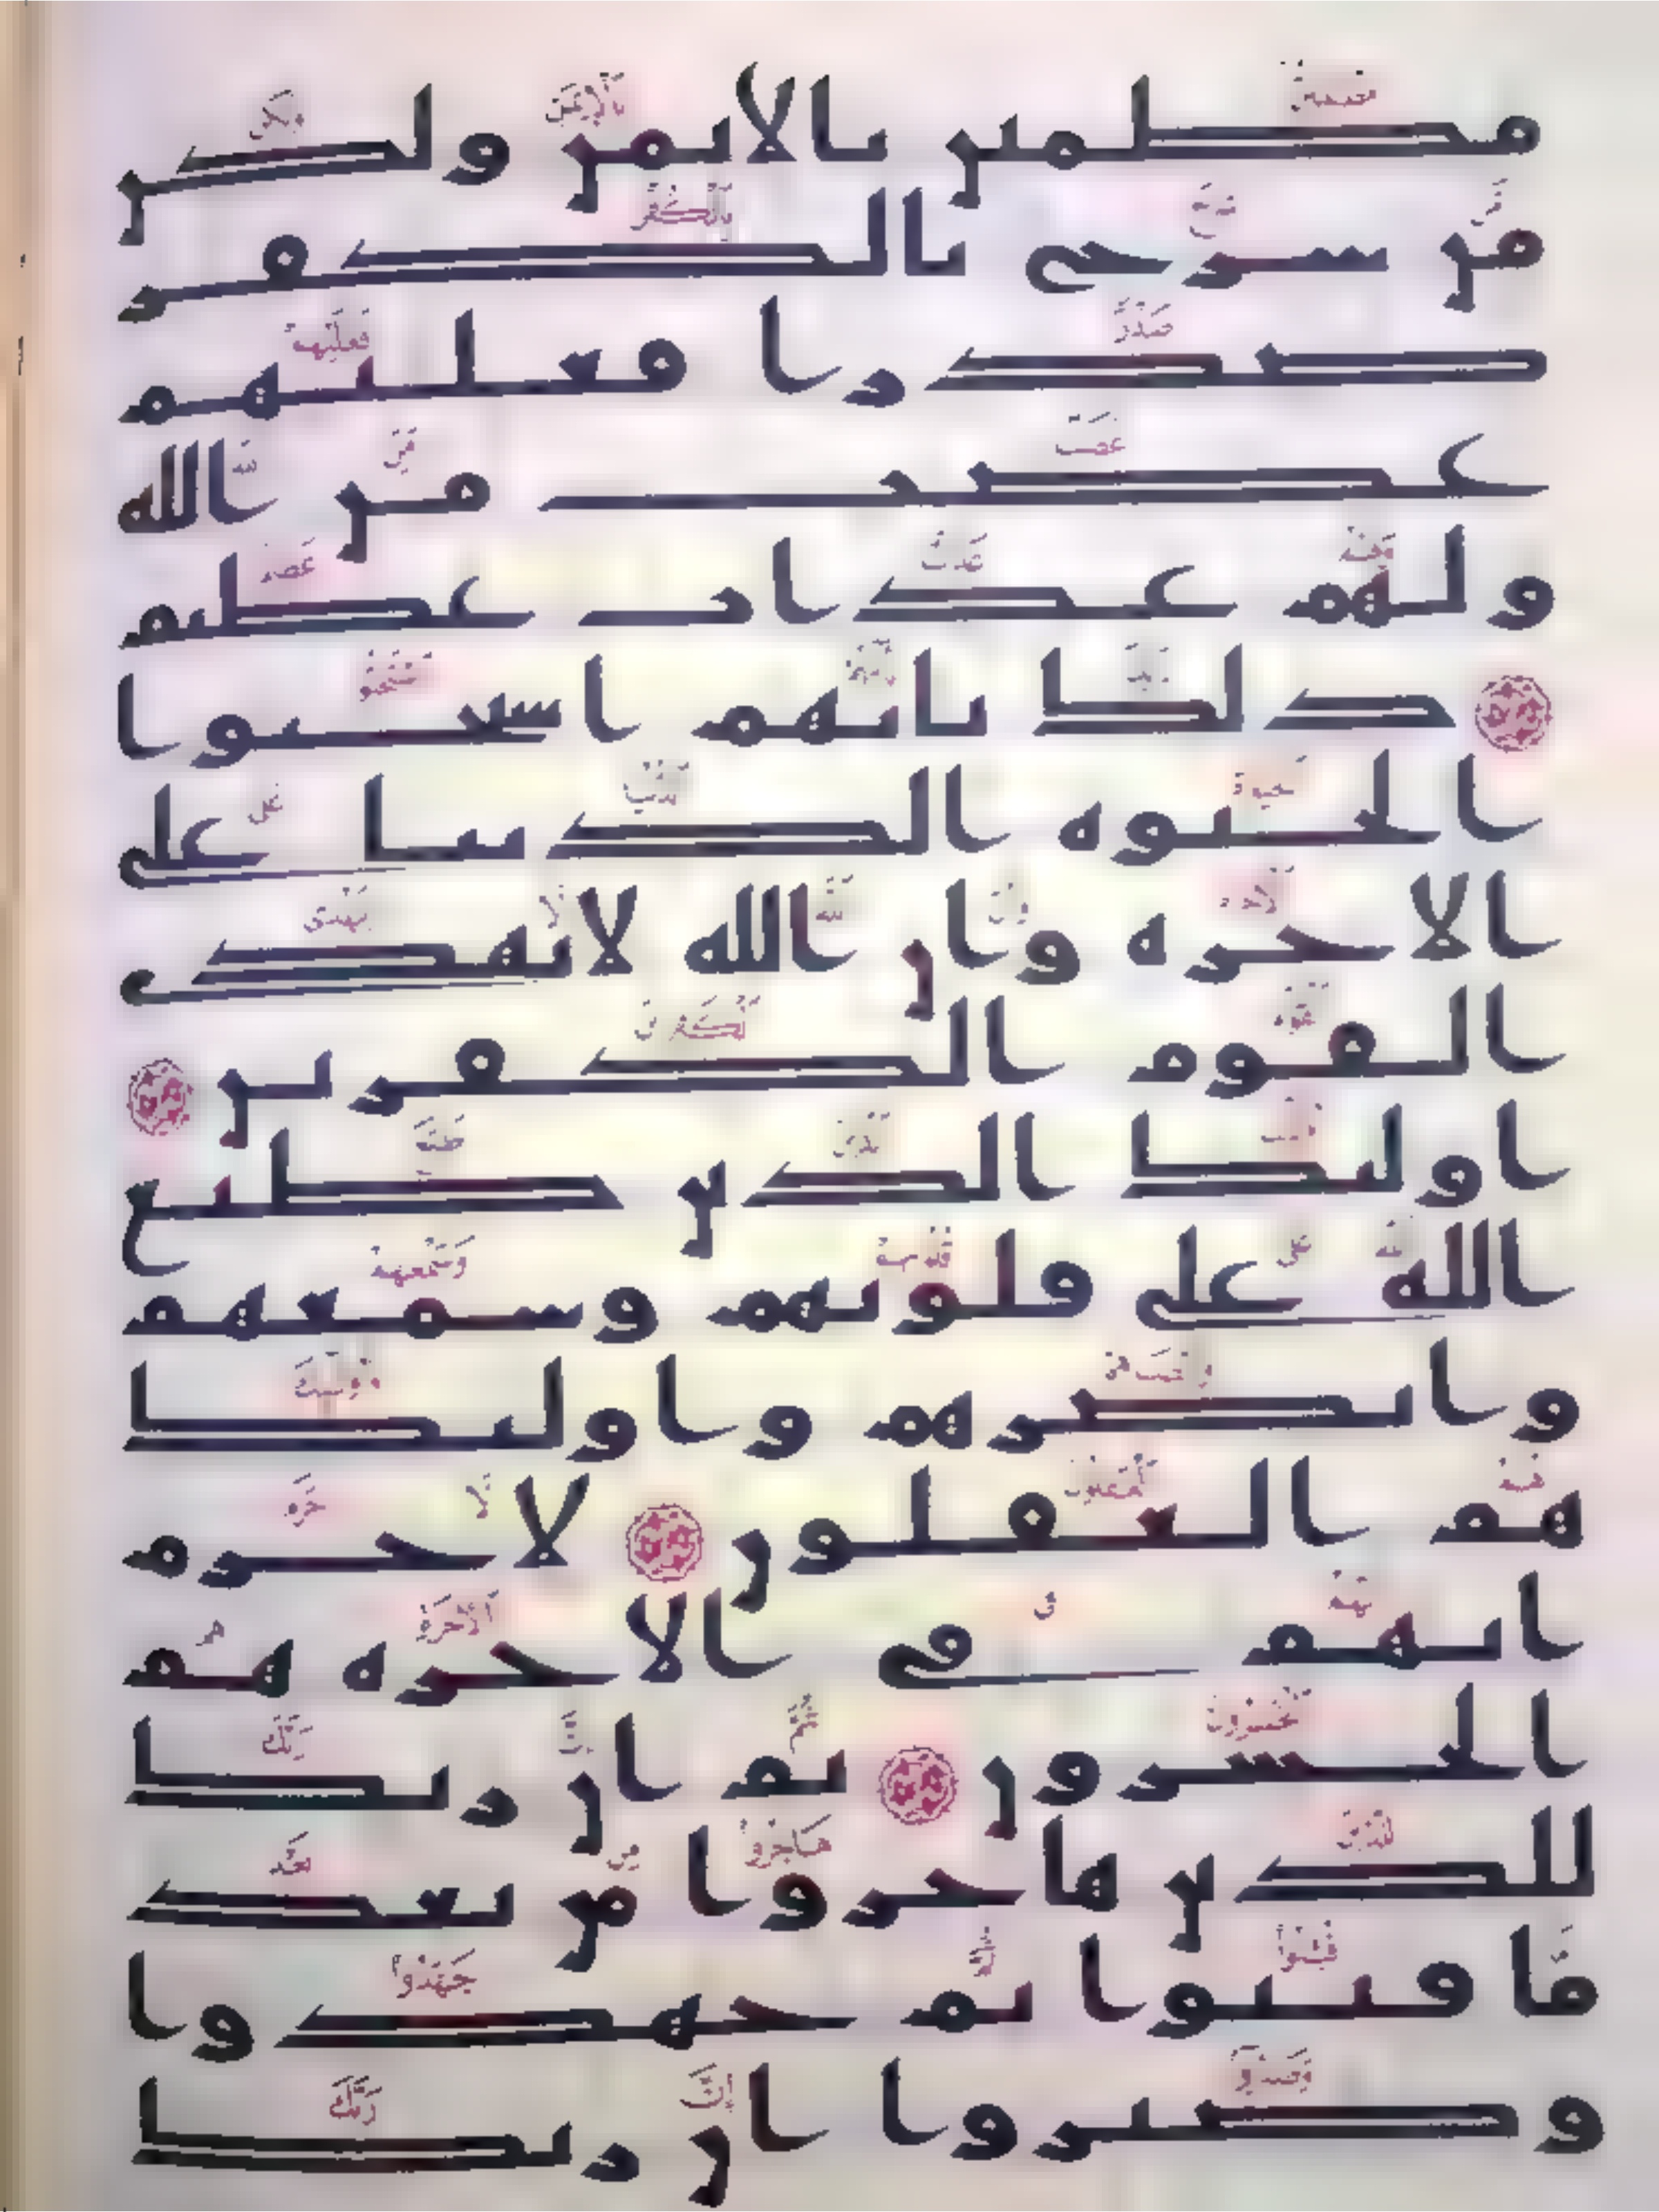 مطمئن بالايمن ولكن
من شرح بالكفر
صدرا فعليهم
غضب من الله
ولهم عذاب عظيم
ذلك بانهم استحبوا
الحيوة الدنيا على
الاخرة وان الله لا يهدى
القوم الكفرين
اولئك الذين طبع
الله على قلوبهم وسمعهم
وابصرهم واولئك
هم الغفلون لا جرم
انهم فى الاخرة هم
الخسرون ثم ان ربك
للذين هاجروا من بعد
ما فتنوا ثم جهدوا
وصبروا ان ربك